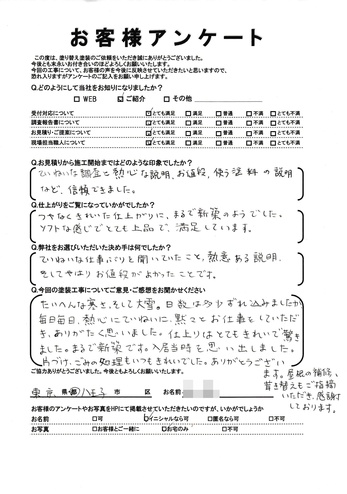 お客様アンケート
この度は、塗り替え塗装のご依頼をいただき誠にありがとうございました。
今後とも末永いお付き合いのほどよろしくお願いいたします。
今回の工事について、お客様の声を今後に反映させていただきたいと思いますので、
恐れ入りますがアンケートのご記入をお願い申し上げます。
Q.どのようにして当社をお知りになりましたか？
□ WEB ☑ ご紹介 □ その他
受付対応について ☑とても満足 □満足 □普通 □不満 □とても不満
調査報告書について ☑とても満足 □満足 □普通 □不満 □とても不満
お見積り・ご提案について ☑とても満足 □満足 □普通 □不満 □とても不満
現場担当職人について ☑とても満足 □満足 □普通 □不満 □とても不満
Q.お見積りから施工開始まではどのような印象でしたか？
ていねいな調査と熱心な説明、お値段、使う塗料の説明
など、信頼できました。
Q.仕上がりをご覧になっていかがでしたか？
つやなくきれいな仕上がりに、まるで新築のようでした。
ソフトな感じでとても上品で、満足しています。
Q.弊社をお選びいただいた決め手は何でしたか？
ていねいな仕事ぶりと聞いていたこと、熱意ある説明、
そしてやはりお値段がよかったことです。
Q.今回の塗装工事についてご意見・ご感想をお聞かせください
たいへんな寒さ、そして大雪。日数は少々ずれ込みましたが
毎日毎日、熱心にていねいに、黙々とお仕事をしていただ
き、ありがたく思いました。仕上りはとてもきれいで驚き
ました。まるで新築です。入居当時を思い出しました。
片づけ、ごみの処理もいつもきれいでした。ありがとうござい
ます。屋根の補修、
葺き替えもご指摘
いただき、感謝
しております。
ご協力ありがとうございました。今後ともよろしくお願いいたします。
東京 県・都 八王子 市 区 お名前
お客様のアンケートやお写真をHPにて掲載させていただきたいのですが、いかがでしょうか
お名前 □可 ☑イニシャルなら可 □匿名なら可 □不可
お写真 □お客様とご一緒に □お宅のみ □不可